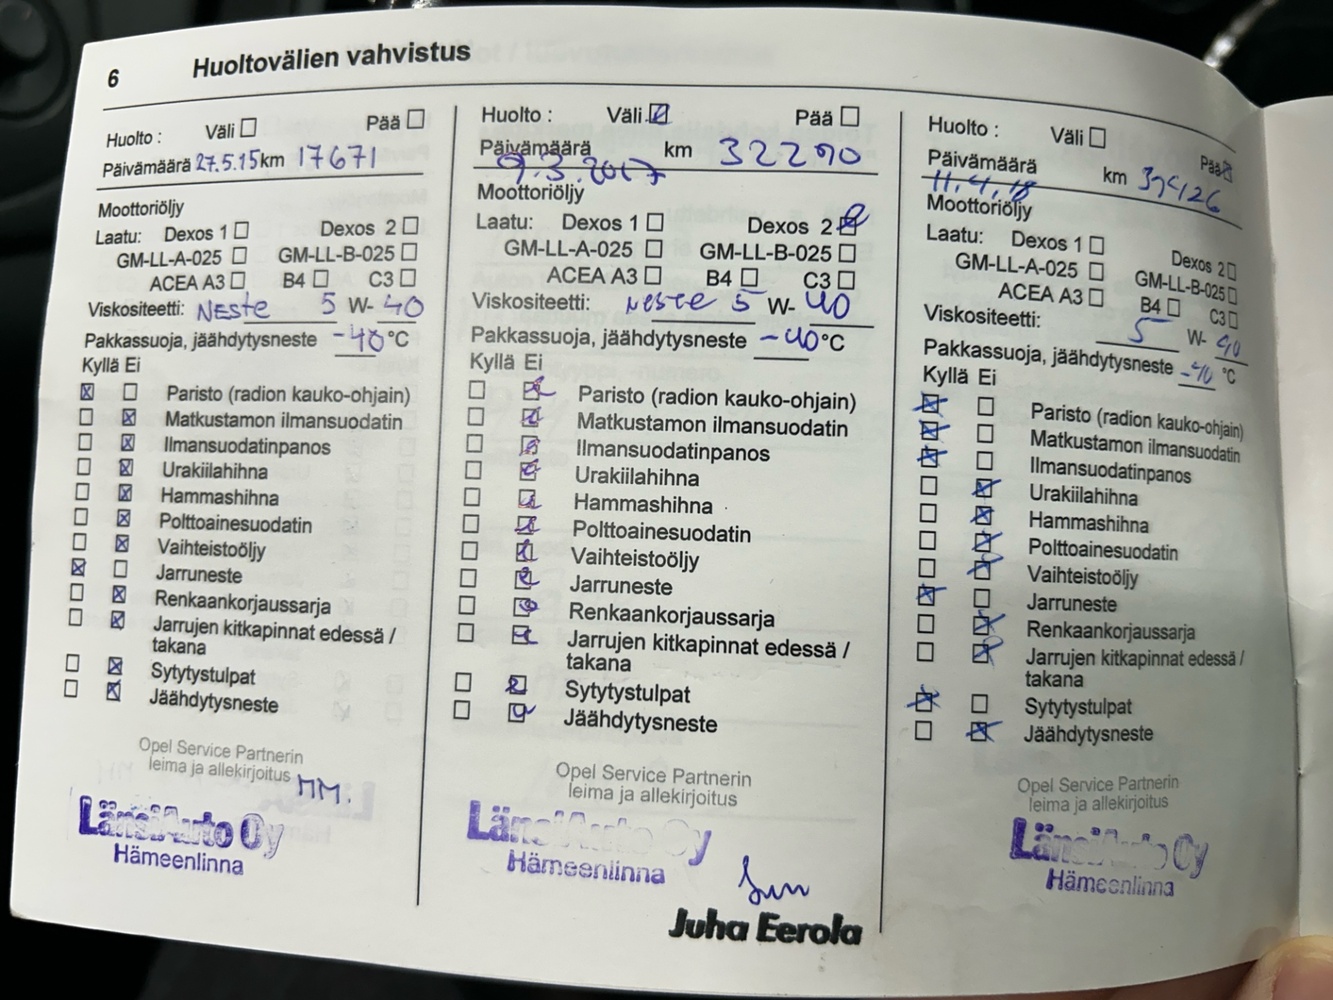 6 Huoltovälien vahvistus
Huolto : Väli ☐ Pää ☐
Päivämäärä 27.5.15 km 17671
Moottoriöljy
Laatu: Dexos 1 ☐ Dexos 2 ☐
GM-LL-A-025 ☐ GM-LL-B-025 ☐
ACEA A3 ☐ B4 ☐ C3 ☐
Viskositeetti: NESte 5 W- 40
Pakkassuoja, jäähdytysneste -40 °C
Kyllä Ei
☒ ☐ Paristo (radion kauko-ohjain)
☐ ☒ Matkustamon ilmansuodatin
☐ ☒ Ilmansuodatinpanos
☐ ☒ Urakiilahihna
☐ ☒ Hammashihna
☐ ☒ Polttoainesuodatin
☐ ☒ Vaihteistoöljy
☒ ☐ Jarruneste
☐ ☒ Renkaankorjaussarja
☐ ☒ Jarrujen kitkapinnat edessä /
takana
☐ ☒ Sytytystulpat
☐ ☒ Jäähdytysneste
Opel Service Partnerin
leima ja allekirjoitus MM.
LänsiAuto Oy
Hämeenlinna
Huolto : Väli ☒ Pää ☐
Päivämäärä km 32290
9.3.2017
Moottoriöljy
Laatu: Dexos 1 ☐ Dexos 2 ☒
GM-LL-A-025 ☐ GM-LL-B-025 ☐
ACEA A3 ☐ B4 ☐ C3 ☐
Viskositeetti: Neste 5 W- 40
Pakkassuoja, jäähdytysneste -40 °C
Kyllä Ei
☐ ☒ Paristo (radion kauko-ohjain)
☐ ☒ Matkustamon ilmansuodatin
☐ ☒ Ilmansuodatinpanos
☐ ☒ Urakiilahihna
☐ ☒ Hammashihna
☐ ☒ Polttoainesuodatin
☐ ☒ Vaihteistoöljy
☐ ☒ Jarruneste
☐ ☒ Renkaankorjaussarja
☐ ☒ Jarrujen kitkapinnat edessä /
takana
☐ ☒ Sytytystulpat
☐ ☒ Jäähdytysneste
Opel Service Partnerin
leima ja allekirjoitus
LänsiAuto Oy
Hämeenlinna
Juha Eerola
Huolto : Väli ☐ Pää ☒
Päivämäärä km
11.4.18
Moottoriöljy
Laatu: Dexos 1 ☐ Dexos 2 ☐
GM-LL-A-025 ☐ GM-LL-B-025 ☐
ACEA A3 ☐ B4 ☐ C3 ☐
Viskositeetti: 5 W- 40
Pakkassuoja, jäähdytysneste -40 °C
Kyllä Ei
☒ ☐ Paristo (radion kauko-ohjain)
☒ ☐ Matkustamon ilmansuodatin
☒ ☐ Ilmansuodatinpanos
☐ ☒ Urakiilahihna
☐ ☒ Hammashihna
☐ ☒ Polttoainesuodatin
☐ ☒ Vaihteistoöljy
☒ ☐ Jarruneste
☐ ☒ Renkaankorjaussarja
☐ ☒ Jarrujen kitkapinnat edessä /
takana
☒ ☐ Sytytystulpat
☐ ☒ Jäähdytysneste
Opel Service Partnerin
leima ja allekirjoitus
LänsiAuto Oy
Hämeenlinna